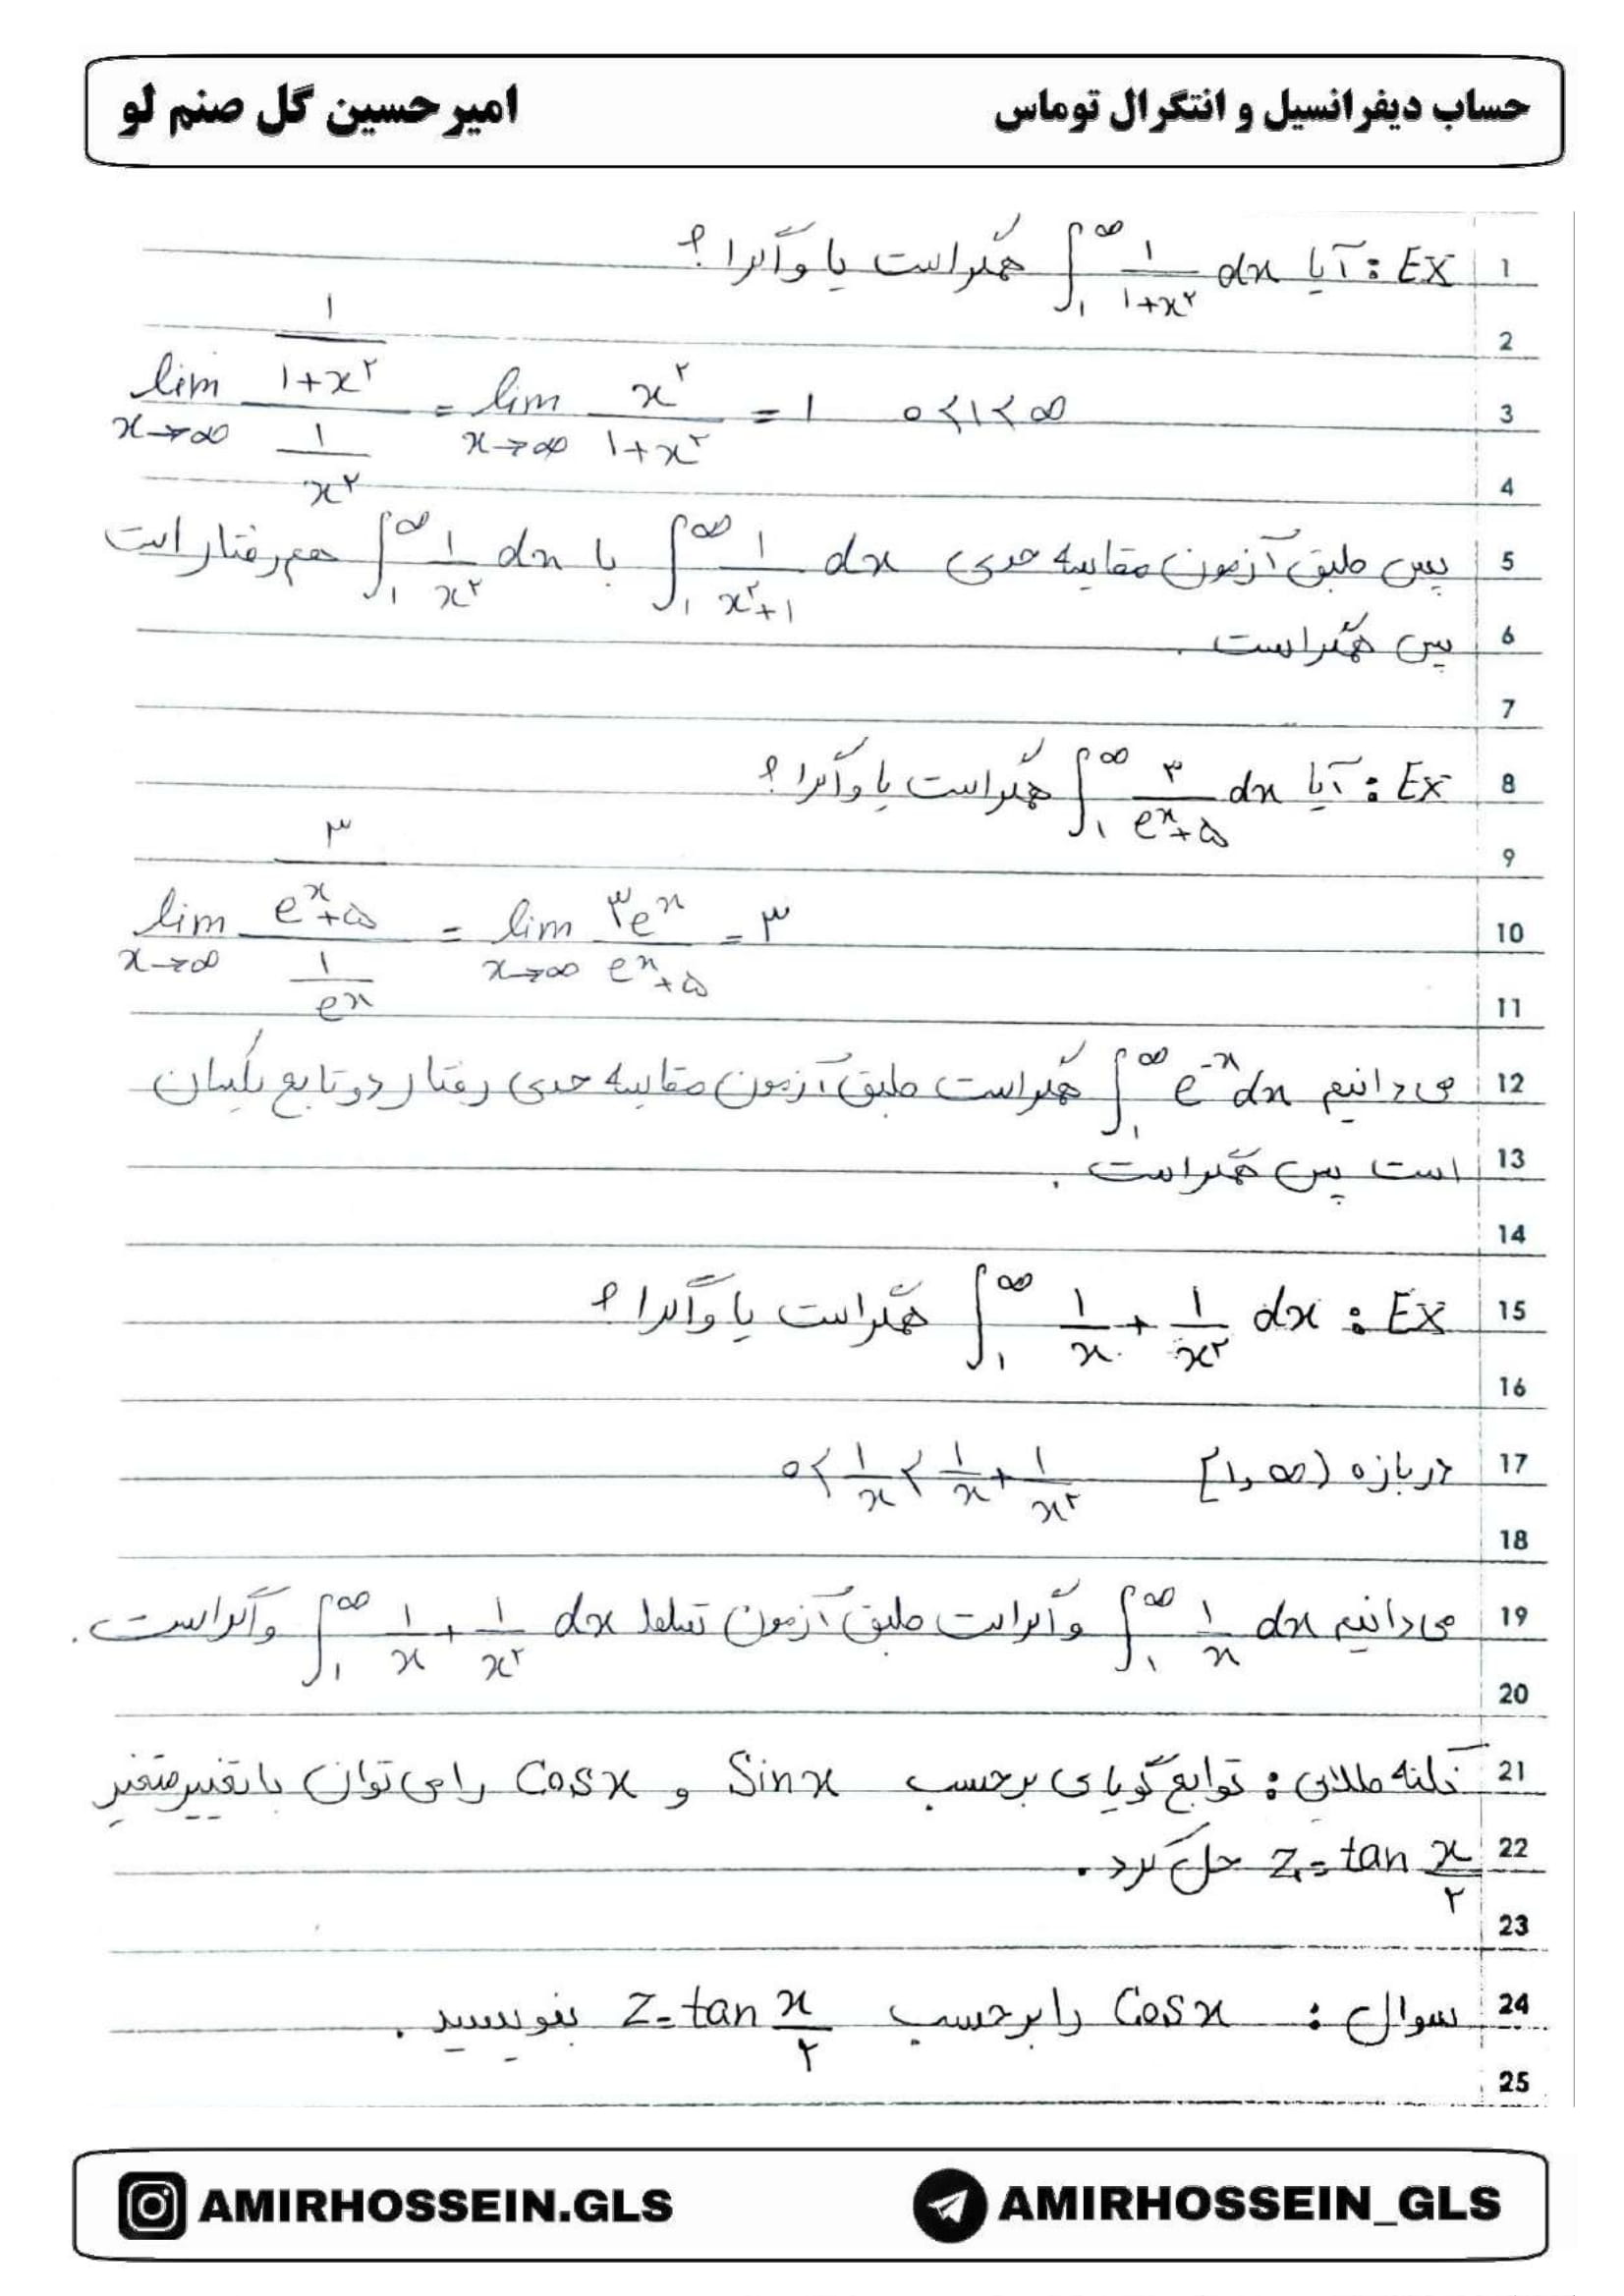 حساب دیفرانسیل و انتگرال توماس
امیرحسین گل صنم لو
1 EX : آیا ∫₁^∞ ۱/(۱+x^۲) dx همگراست یا واگرا ؟
2
3 lim x→∞ (۱/(۱+x^۲))/(۱/x^۲) = lim x→∞ x^۲/(۱+x^۲) = ۱ ۰<۱<∞
4
5 پس طبق آزمون مقایسه حدی ∫₁^∞ ۱/(x^۲+۱) dx با ∫₁^∞ ۱/x^۲ dx هم رفتار است
6 پس همگراست .
7
8 EX : آیا ∫₁^∞ ۳/(e^x+۵) dx همگراست یا واگرا ؟
9
10 lim x→∞ (۳/(e^x+۵))/(۱/e^x) = lim x→∞ ۳e^x/(e^x+۵) = ۳
11
12 می دانیم ∫₁^∞ e^-x dx همگراست طبق آزمون مقایسه حدی رفتار دو تابع یکسان
13 است پس همگراست .
14
15 EX : ∫₁^∞ ۱/x + ۱/x^۲ dx همگراست یا واگرا ؟
16
17 در بازه [۱,∞) ۰<۱/x<۱/x+۱/x^۲
18
19 می دانیم ∫₁^∞ ۱/x dx واگراست طبق آزمون تسلط ∫₁^∞ ۱/x + ۱/x^۲ dx واگراست .
20
21 نکته طلایی : توابع گویای برحسب Sin x و Cos x را می توان با تغییر متغیر
22 Z = tan x/۲ حل کرد .
23
24 سوال : Cos x را برحسب Z = tan x/۲ بنویسید .
25
AMIRHOSSEIN.GLS
AMIRHOSSEIN_GLS